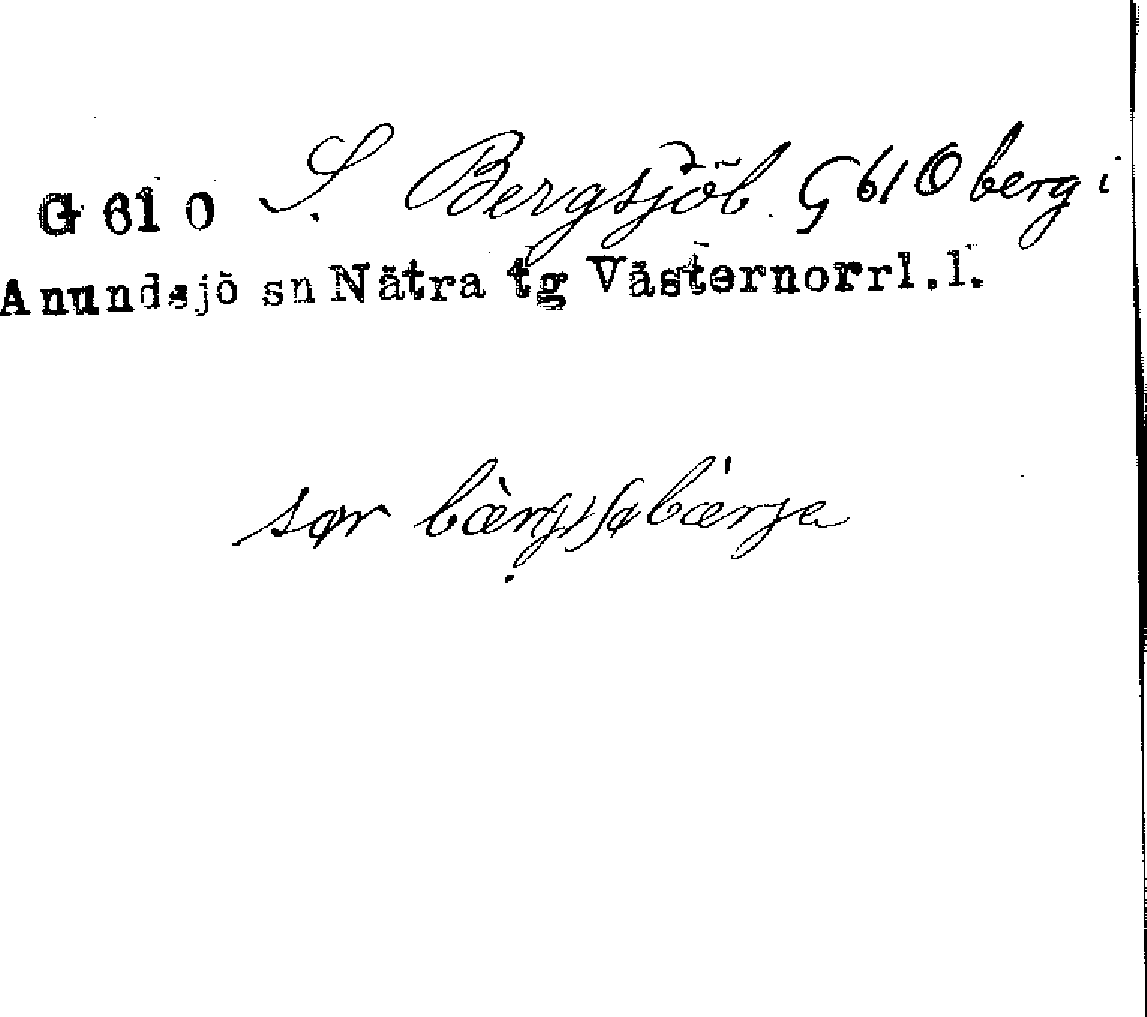 G 61 0 S. Bergsjöb. G 61 0 berg i
Anundsjö sn Nätra tg Västernorrl.l.
sør